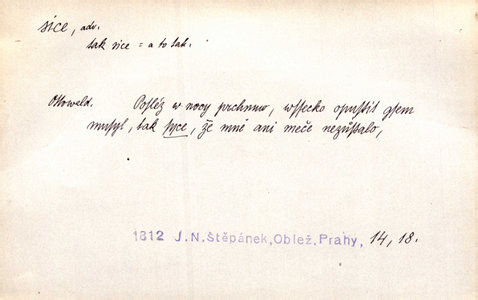 sice, adv.
tak sice = a to tak.
Ottoweld. Posléz w nocy prchnuw, wssecko opustit gsem
musyl, tak syce, že mně ani meče nezůstalo,
1812 J.N.Štěpánek,Oblež.Prahy, 14, 18.